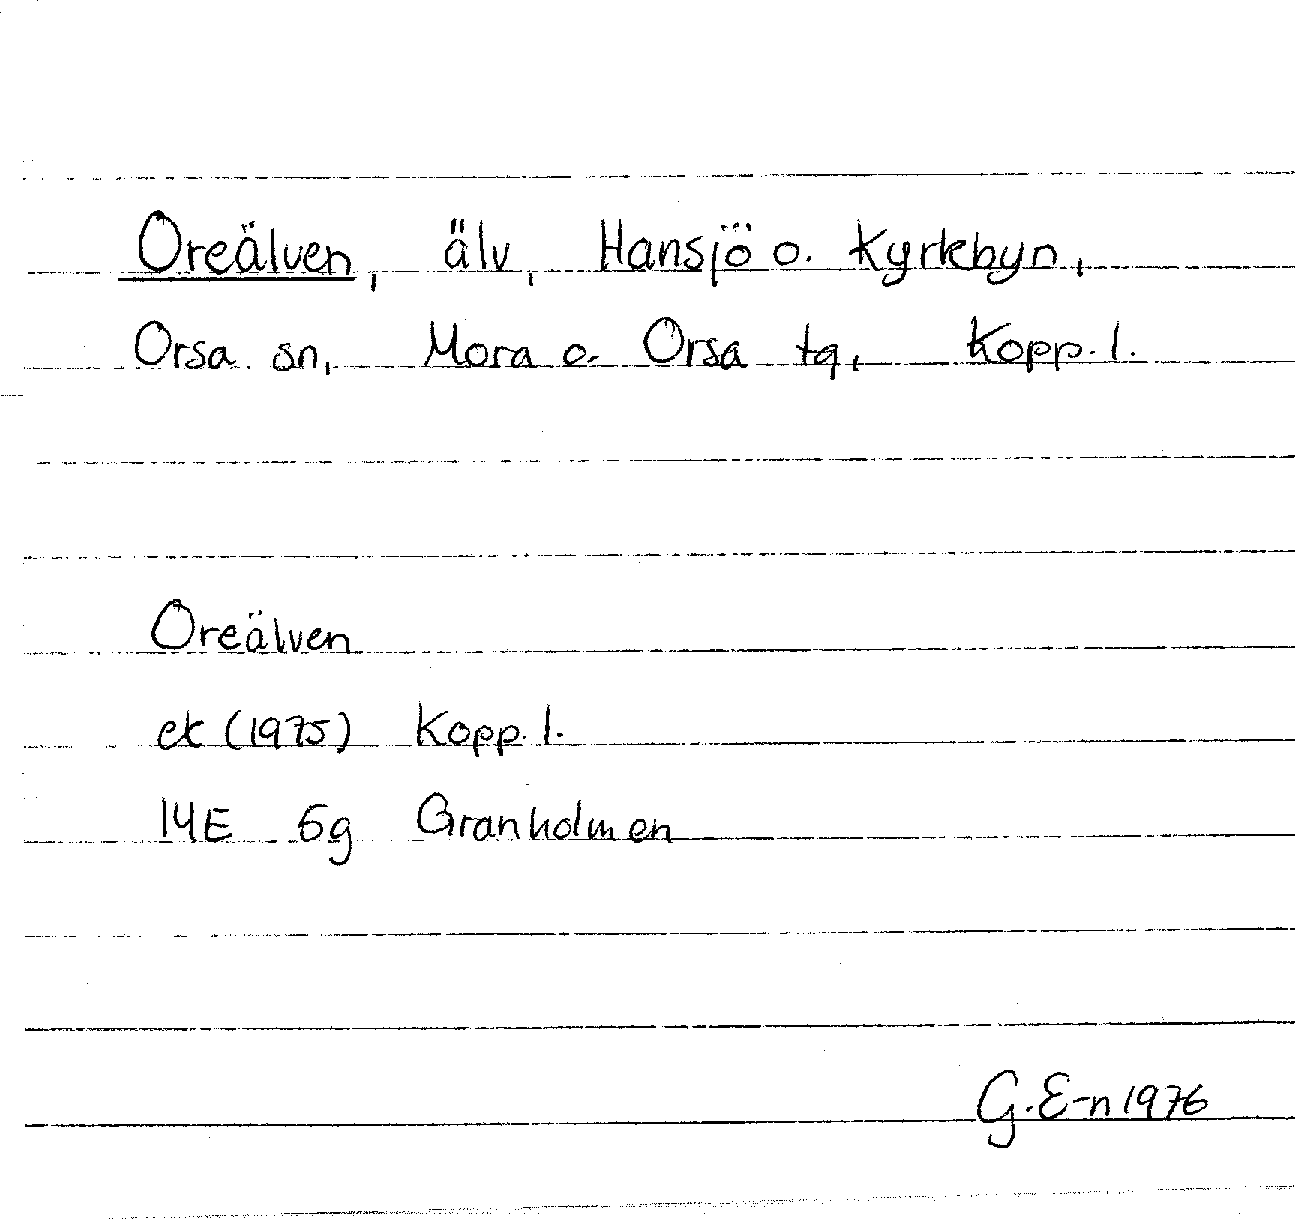 Oreälven, älv, Hansjö o. Kyrkbyn,
Orsa sn, Mora o. Orsa tg, Kopp. l.
Oreälven
ek (1975) Kopp. l.
14E 6g Granholmen
G. E-n 1976